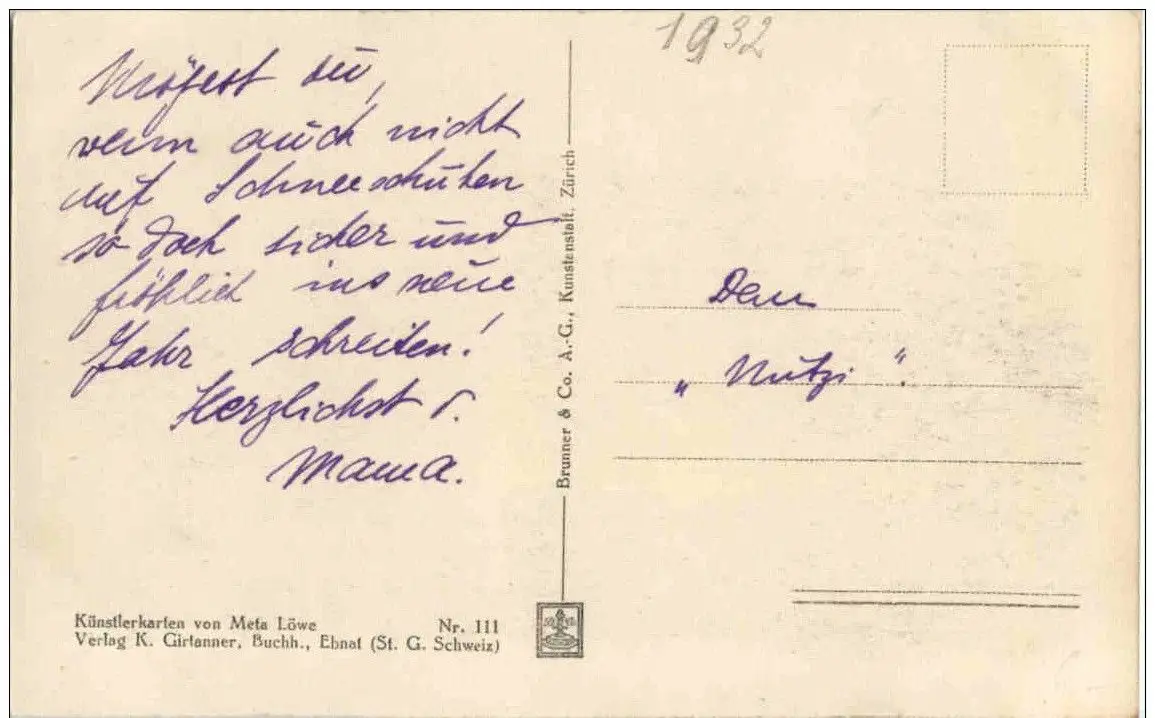 1932
Mögest du,
wenn auch nicht
auf Schneeschuhen
so doch sicher und
fröhlich ins neue
Jahr schreiten!
Herzlichst
Mama.
Dem
„Mutzi“.
Brunner & Co. A.-G., Kunstanstalt, Zürich
Künstlerkarten von Meta Löwe Nr. 111
Verlag K. Girtanner, Buchh., Ebnat (St. G. Schweiz)